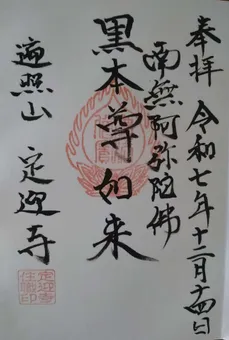 奉拝 令和七年十二月十四日
南無阿弥陀佛
黒本尊如来
遍照山 定迎寺
定迎寺
住職印